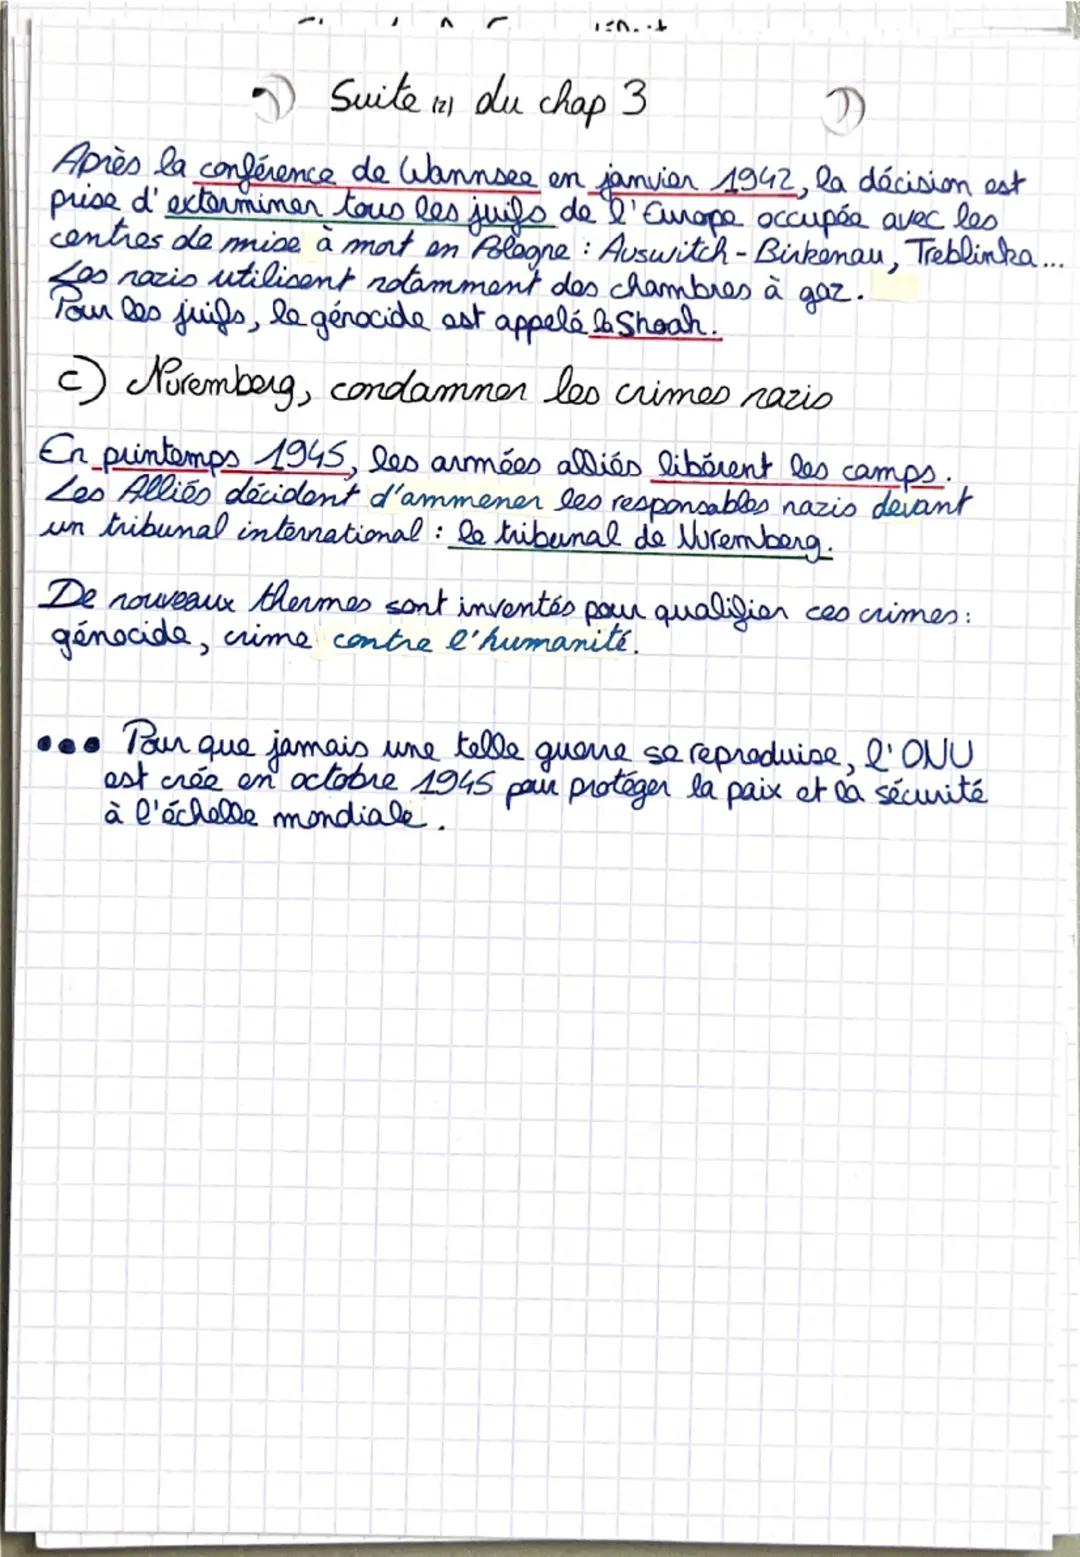 Suite (2) du chap 3
Après la conférence de Wannsee en janvier 1942, la décision est
prise d'exterminer tous les juifs de l'Europe occupée avec les
centres de mise à mort en Pologne : Auswitch - Birkenau, Treblinka...
Les nazis utilisent notamment des chambres à gaz.
Pour les juifs, le génocide est appelé la Shoah.
c) Nuremberg, condamner les crimes nazis
En printemps 1945, les armées alliés libérent les camps.
Les Alliés décident d'ammener les responsables nazis devant
un tribunal international : le tribunal de Nuremberg.
De nouveaux thermes sont inventés pour qualifier ces crimes :
génocide, crime contre l'humanité.
••• Pour que jamais une telle guerre se reproduise, l'ONU
est crée en octobre 1945 pour protéger la paix et la sécurité
à l'échelle mondiale.